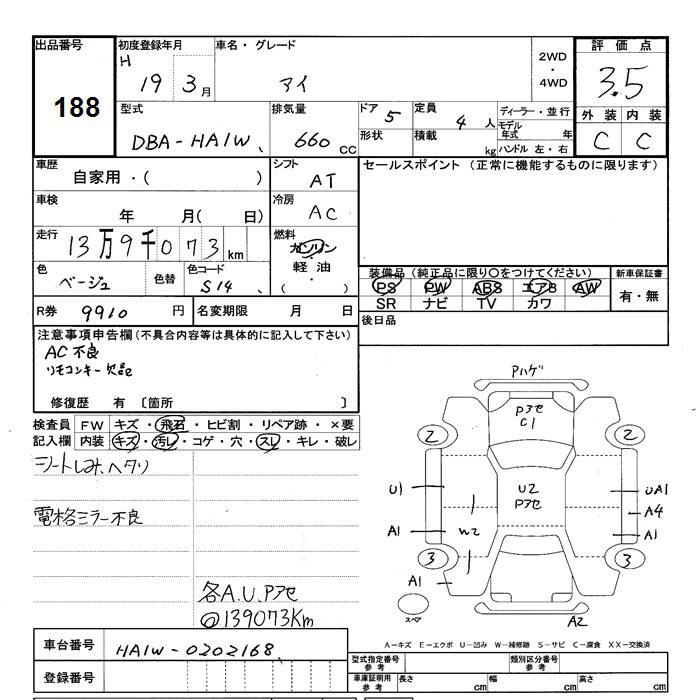 出品番号 初度登録年月 車名・グレード 2WD ・ 4WD 評価点
188 H 19 3月 アイ 3.5
型式 排気量 ドア 5 定員 4人 ディーラー・並行 外装 内装
DBA-HA1W 660 CC 形状 積載 kg モデル年式 年 ハンドル 左・右 C C
車歴 シフト セールスポイント (正常に機能するものに限ります)
自家用・( ) AT
車検 冷房
年 月( 日) AC
走行 燃料
13万9千073km ガソリン・軽油・( )
色 色替 色コード 装備品(純正品に限り○をつけてください) 新車保証書
ベージュ S14 PS PW ABS エアB AW 有・無
SR ナビ TV カワ
R券 9910 円 名変期限 月 日 後日品
注意事項申告欄(不具合内容等は具体的に記入して下さい)
AC不良
リモコンキー欠品
修復歴 有 〔箇所 〕
検査員 FW キズ・飛石・ヒビ割・リペア跡・×要
記入欄 内装 キズ・汚レ・コゲ・穴・スレ・キレ・破レ
シートしみ、ヘタリ
電格ミラー不良
各A.U.Pアセ
@139073Km
Pハゲ
Pアセ
C1
2 2
U1 U2 UA1
Pアセ A4
A1 W2 A1
3 3
A1
スペア A2
A-キズ E-エクボ U-凹み W-補修跡 S-サビ C-腐食 XX-交換済
車台番号 HA1W-0202168
型式指定番号 参考 類別区分番号 参考
登録番号 車庫証明用 参考 長さ cm 幅 cm 高さ cm